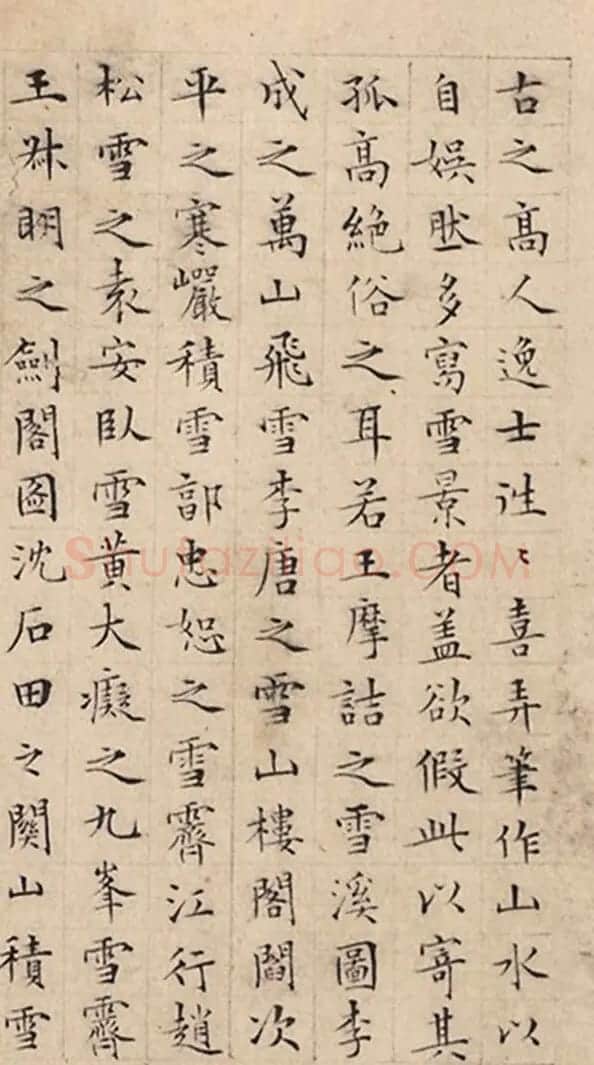 古之高人逸士往〻喜弄筆作山水以
自娛然多寫雪景者盖欲假此以寄其
孤高絕俗之耳若王摩詰之雪溪圖李
成之萬山飛雪李唐之雪山樓閣閻次
平之寒巖積雪郭忠恕之雪霽江行趙
松雪之袁安臥雪黃大癡之九峯雪霽
王叔明之劍閣圖沈石田之關山積雪
Shufaziliao.COM